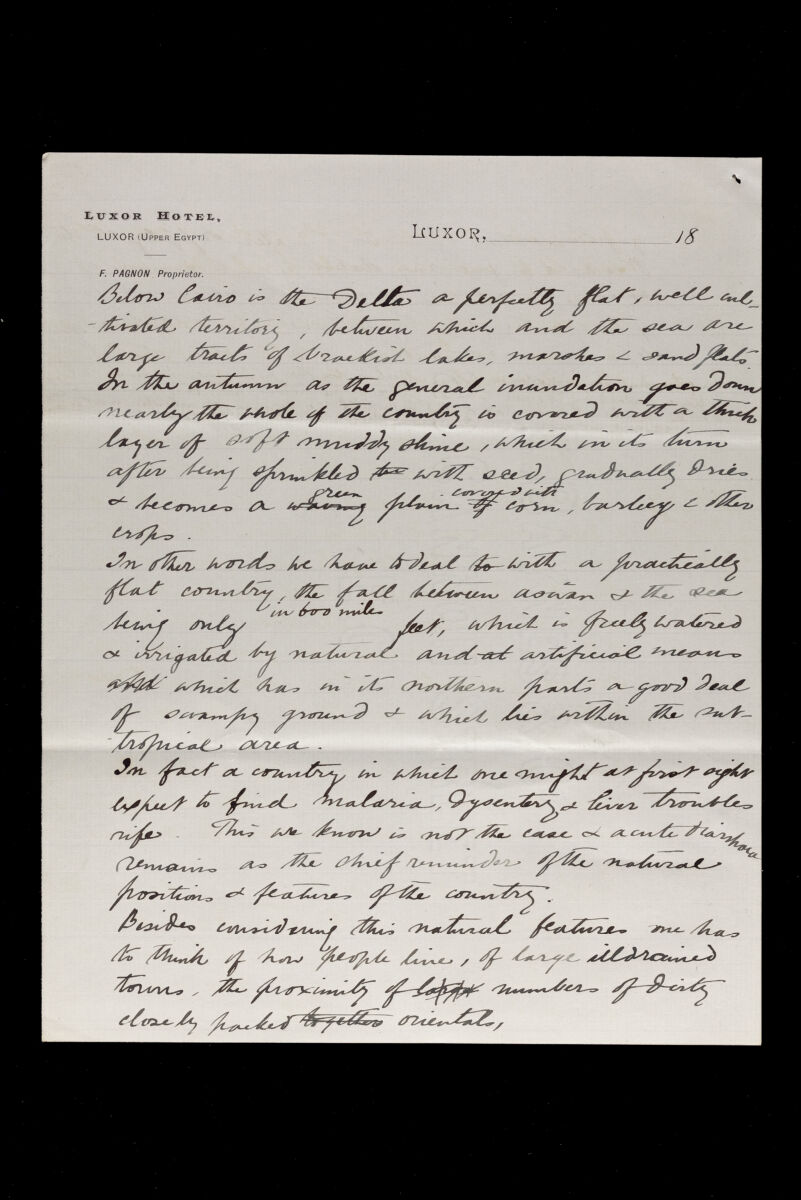 LUXOR HOTEL,
LUXOR (UPPER EGYPT)
F. PAGNON Proprietor.
LUXOR, 18
Below Cairo is the Delta a perfectly flat, well cul-
-tivated territory, between which and the sea are
large tracts of brackish lakes, marshes & sand flats.
In the autumn as the general inundation goes down
nearly the whole of the country is covered with a thick
layer of soft muddy slime, which in its turn
after being sprinkled with seed, gradually dries
green covered with
& becomes a waving plain of corn, barley & other
crops.
In other words we have to deal to with a practically
flat country, the fall between aswan & the sea
in 600 miles
being only feet, which is freely watered
& irrigated by natural and at artificial means
which has in its northern parts a good deal
of swampy ground & which lies within the sub-
tropical area.
In fact a country in which one might at first sight
expect to find malaria, dysentery & liver troubles
rife. This we know is not the case & acute diarrhoea
remains as the chief reminder of the natural
positions & features of the country.
Besides considering this natural features one has
to think of how people live, of large illdrained
towns, the proximity of large numbers of dirty
closely packed together orientals,